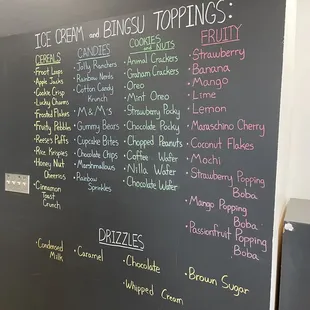 ICE CREAM and BINGSU TOPPINGS:
CEREALS
• Froot Loops
• Apple Jacks
• Cookie Crisp
• Lucky Charms
• Frosted Flakes
• Fruity Pebbles
• Reese's Puffs
• Rice Krispies
• Honey Nut
Cheerios
• Cinnamon
Toast
Crunch
CANDIES
• Jolly Ranchers
• Rainbow Nerds
• Cotton Candy
Krunch
• M&M's
• Gummy Bears
• Cupcake Bites
• Chocolate Chips
• Marshmallows
• Rainbow
Sprinkles
COOKIES
and NUTS
• Animal Crackers
• Graham Crackers
• Oreo
• Mint Oreo
• Strawberry Pocky
• Chocolate Pocky
• Chopped Peanuts
• Coffee Wafer
• Nilla Wafer
• Chocolate Wafer
FRUITY
• Strawberry
• Banana
• Mango
• Lime
• Lemon
• Maraschino Cherry
• Coconut Flakes
• Mochi
• Strawberry Popping
Boba
• Mango Popping
Boba
• Passionfruit Popping
Boba
DRIZZLES
• Condensed
Milk
• Caramel
• Chocolate
• Whipped Cream
• Brown Sugar